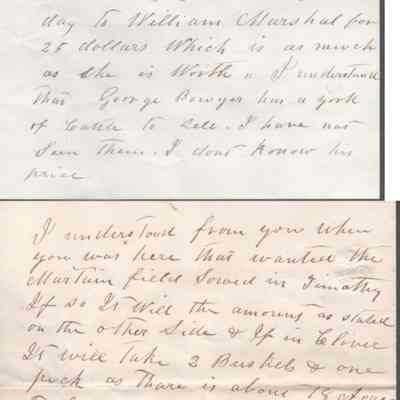 day to William Marshal for
25 dollars Which is as much
as she is Worth & I understand
that George Bowyer has a york
of Cattle to Sell. I have not
Seen them. I dont Konow his
price
I understood from you when
you was here that wanted the
Martin field Sowed in Timothy
If so It Will the amount as stated
on the other Side & If in Clover
It will take 3 Bushels & one
peck as There is about 18 Acres